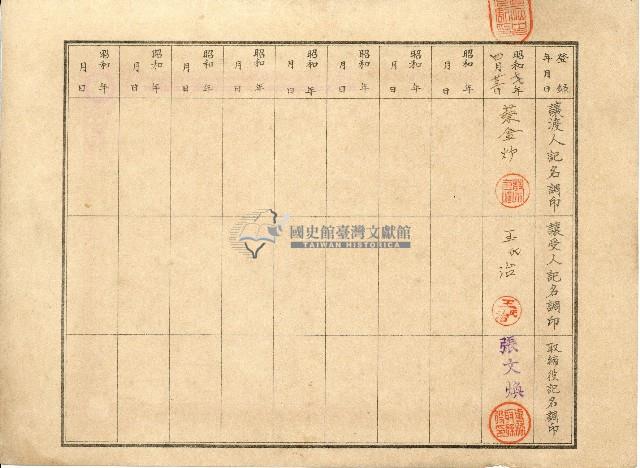 登録
年月日
讓渡人記名調印
讓受人記名調印
取締役記名調印
昭和七年
四月
蔡金炒
王
治
張文煥
昭和 年
月 日
昭和 年
月 日
昭和 年
月 日
昭和 年
月 日
昭和 年
月 日
昭和 年
月 日
昭和 年
月 日
昭和 年
月 日
國史館臺灣文獻館
TAIWAN HISTORICA